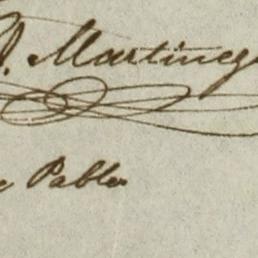 D. Martinez
e Pablo